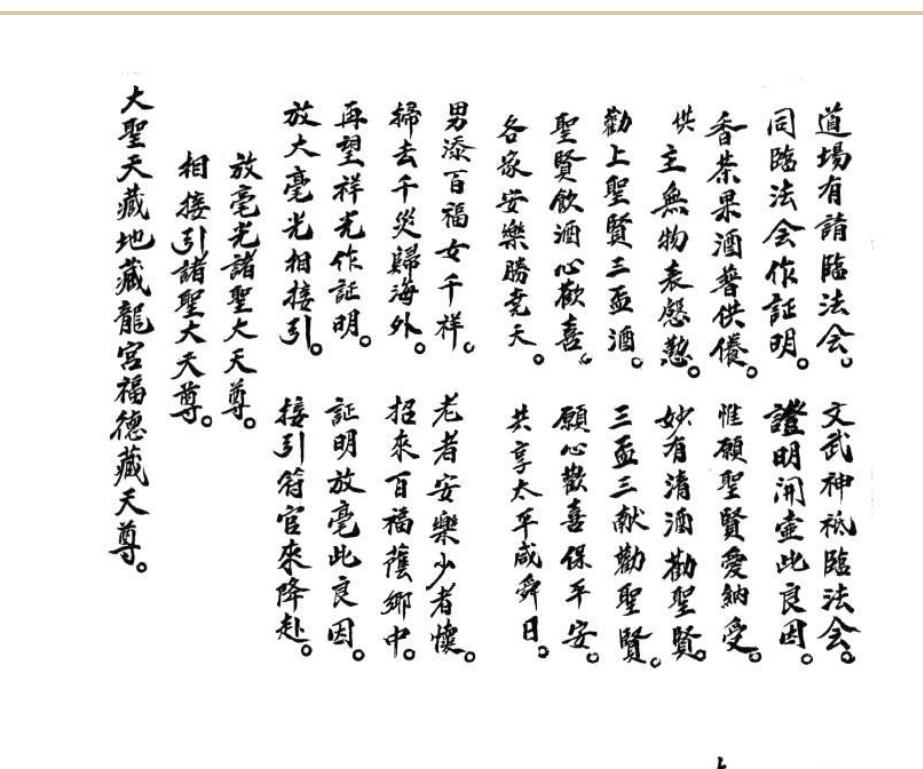 道場有請臨法会。文武神祗臨法会。
同臨法会作証明。證明開壺此良因。
香茶果酒普供僟。惟願聖賢愛納受。
供主無物表慇懃。妙有清酒勸聖賢。
勸上聖賢三盃酒。三盃三献勸聖賢。
聖賢飲酒心歡喜。願心歡喜保平安。
各家安樂勝堯天。共享太平咸舜日。
男添百福女千祥。老者安樂少者懷。
掃去千災歸海外。招來百福蔭鄉中。
再望祥光作証明。証明放毫此良因。
放大毫光相接引。接引符官來降赴。
放毫光諸聖大天尊。
相接引諸聖大天尊。
大聖天藏地藏龍宮福德藏天尊。